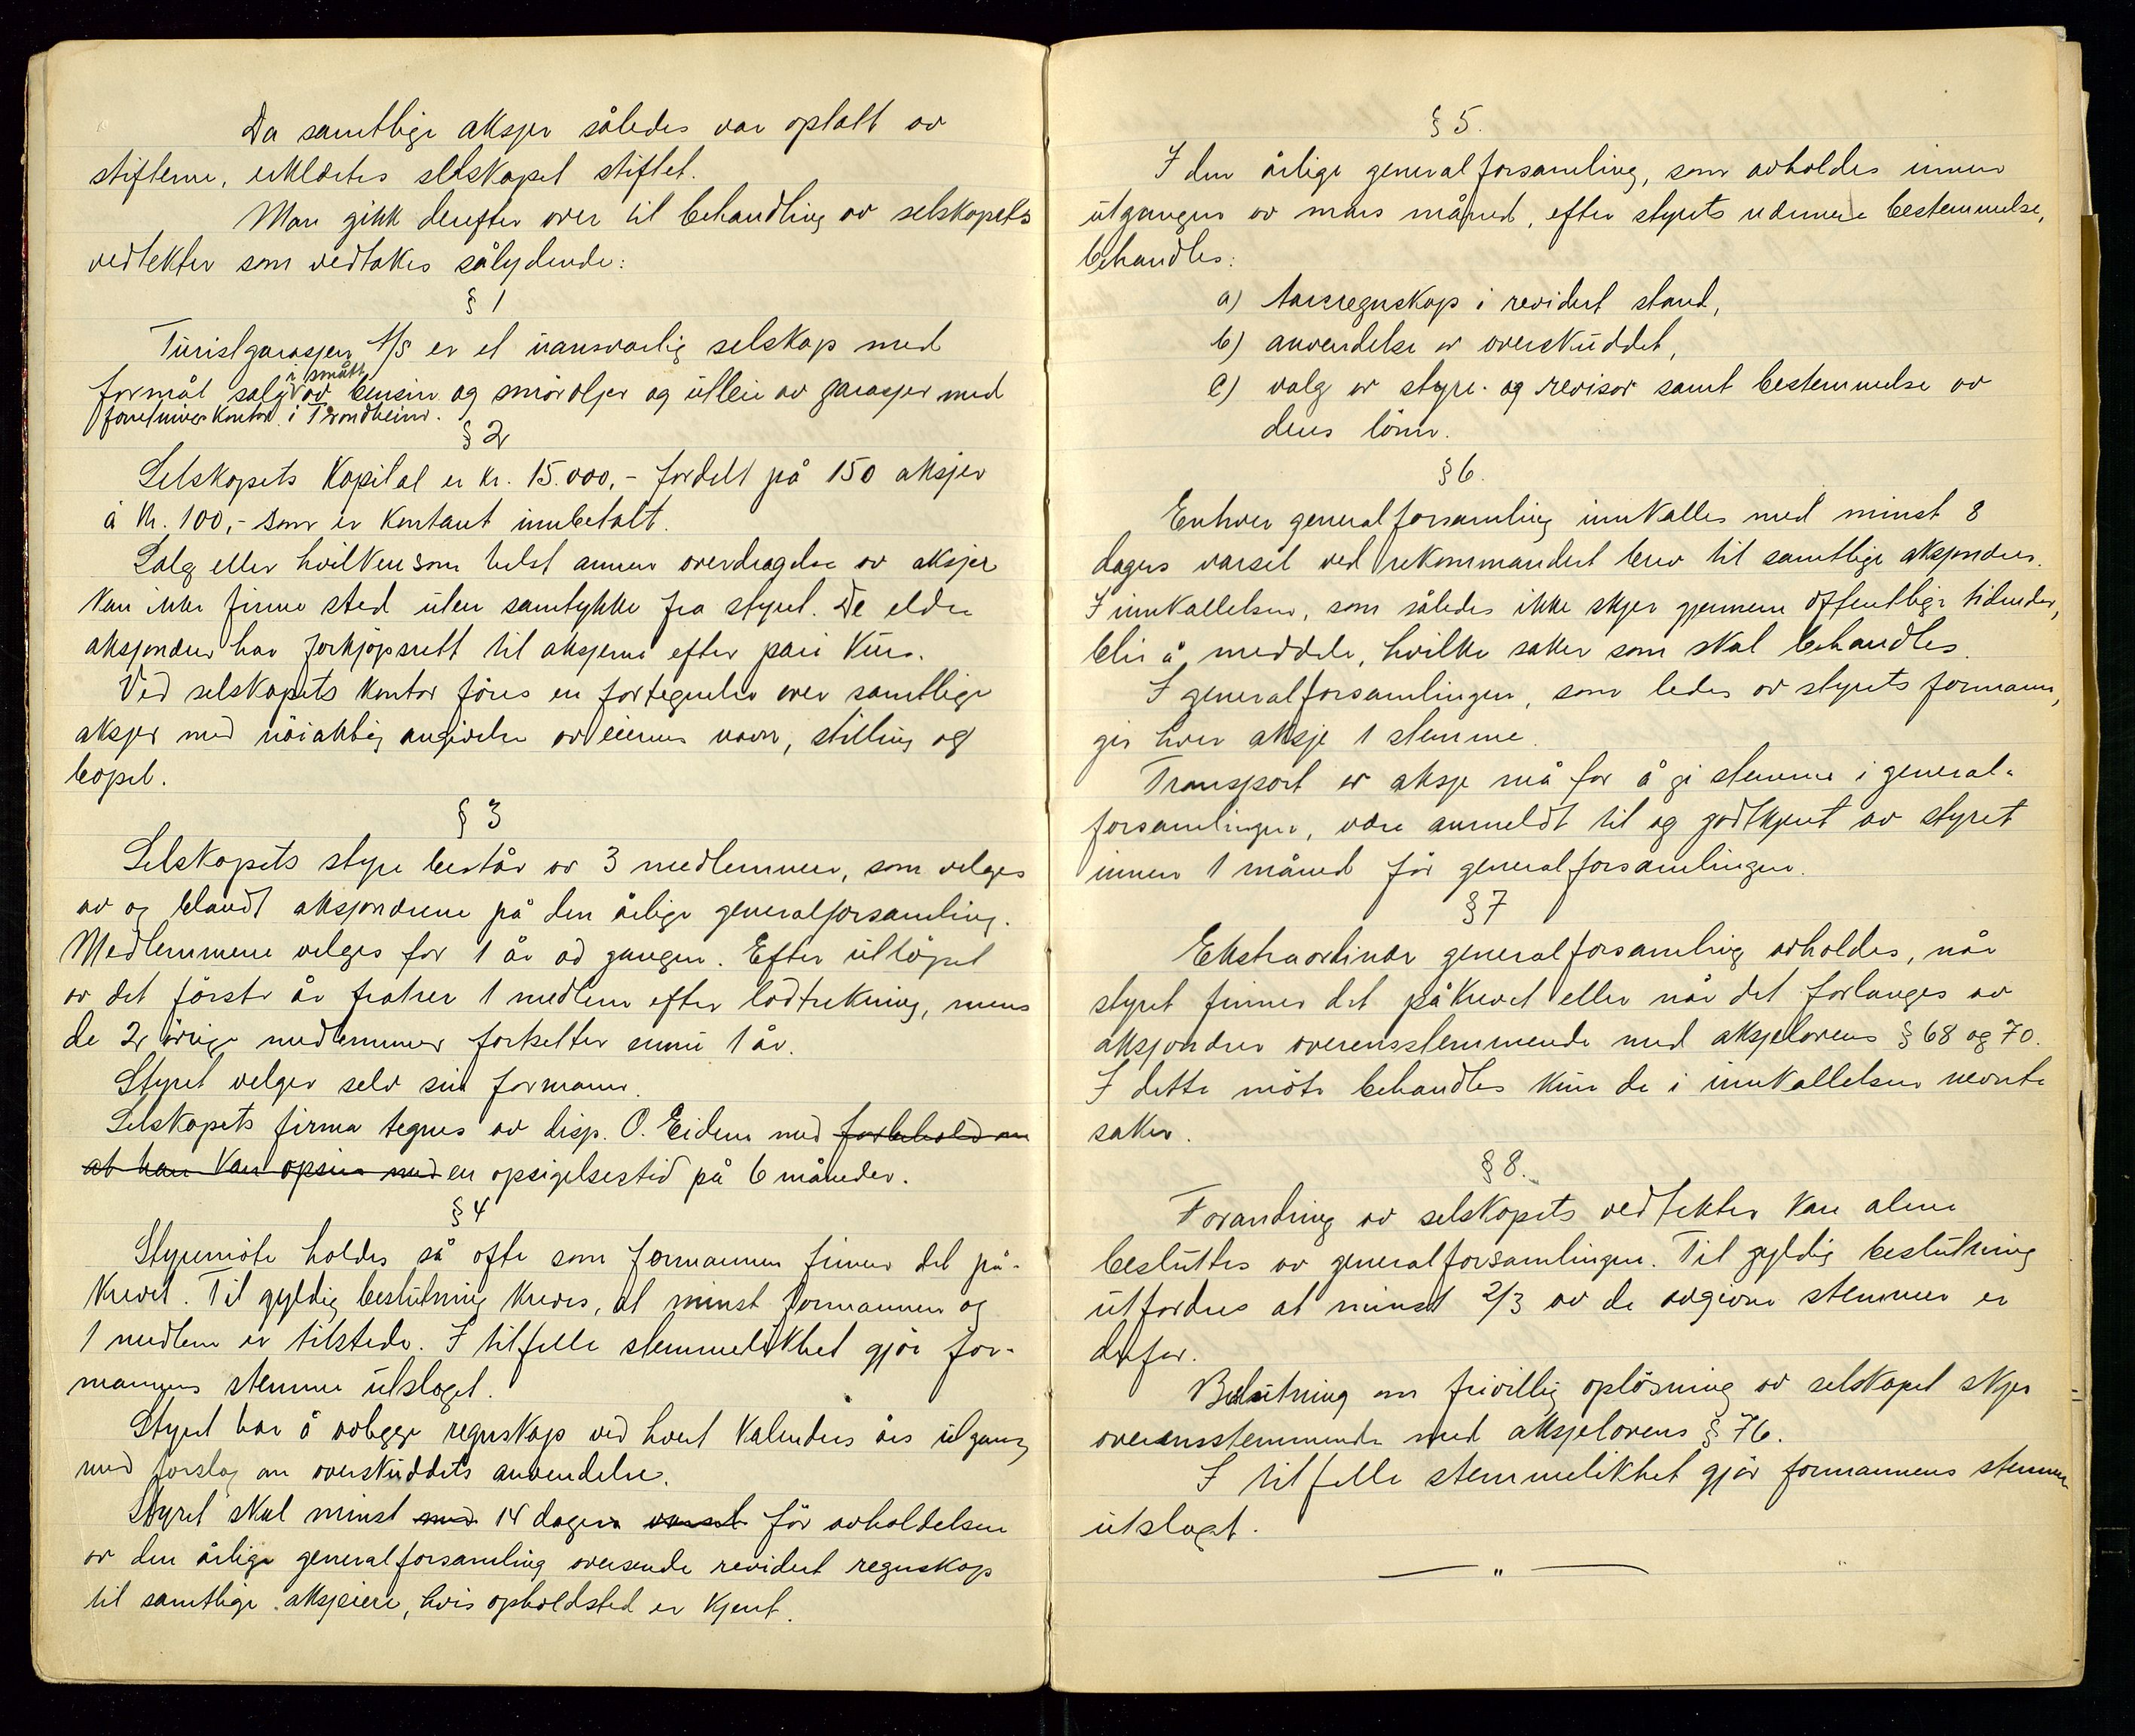 Da samtlige aksjer således var optatt av
stifterne, erklærtes selskapet stiftet.
Man gikk derefter over til behandling av selskapets
vedtekter som vedtokes sålydende:
§ 1
Turistgarasjen A/S er et uansvarlig selskap med
i smått
formål salg av bensin og smöroljer og utleie av garasjer med
forretningskontor i Trondheim.
§ 2
Selskapets kapital er kr. 15.000,- fordelt på 150 aksjer
à kr. 100,- som er kontant innbetalt.
Salg eller hvilkensom helst annen overdragelse av aksjer
kan ikke finne sted uten samtykke fra styret. De eldre
aksjonærer har forkjöpsrett til aksjene efter pari kurs.
Ved selskapets kontor föres en fortegnelse over samtlige
aksjer med nöiaktig angivelse av eierens navn, stilling og
bopel.
§ 3
Selskapets styre består av 3 medlemmer, som velges
av og blandt aksjonærene på den årlige generalforsamling.
Medlemmene velges for 1 år ad gangen. Efter utlöpet
av det förste år fratrer 1 medlem efter lodtrekning, mens
de 2 övrige medlemmer fortsetter ennu 1 år.
Styret velger selv sin formann.
Selskapets firma tegnes av disp. O. Eidem med forbehold om
at han kan opsies med en opsigelsestid på 6 måneder.
§ 4
Styremöte holdes så ofte som formannen finner det på-
krevet. Til gyldig beslutning kreves, at minst formannen og
1 medlem er tilstede. I tilfelle stemmelikhet gjör for-
mannens stemme utslaget.
Styret har å avlegge regnskap ved hvert kalenders års utgang
med forslag om overskuddets anvendelse.
Styret skal minst med 14 dager varsel för avholdelsen
av den årlige generalforsamling oversende revidert regnskap
til samtlige aksjeeiere, hvis opholdsted er kjent.
§ 5.
I den årlige generalforsamling, som avholdes innen
utgangen av mars måned, efter styrets nærmere bestemmelse,
behandles:
a) Aarsregnskap i revidert stand,
b) anvendelse av overskuddet,
c) valg av styre- og revisor samt bestemmelse av
deres lönn.
§ 6.
Enhver generalforsamling innkalles med minst 8
dagers varsel ved rekommandert brev til samtlige aksjonærer.
I innkallelsen, som således ikke skjer gjennem offentlige tidender,
blir å meddele, hvilke saker som skal behandles.
I generalforsamlingen, som ledes av styrets formann,
gir hver aksje 1 stemme.
Transport av aksje må for å gi stemme i general-
forsamlingen, være anmeldt til og godtkjent av styret
innen 1 måned för generalforsamlingen.
§ 7
Ekstraordinær generalforsamling avholdes, når
styret finner det påkrevet eller når det forlanges av
aksjonærer overensstemmende med aksjelovens § 68 og 70.
I dette möte behandles kun de i innkallelsen nevnte
saker.
§ 8.
Forandring av selskapets vedtekter kan alene
besluttes av generalforsamlingen. Til gyldig beslutning
utfordres at minst 2/3 av de avgivne stemmer er
derfor.
Beslutning om frivillig oplösning av selskapet skjer
overensstemmende med aksjelovens § 76.
I tilfelle stemmelikhet gjör formannens stemme
utslaget.
— " —